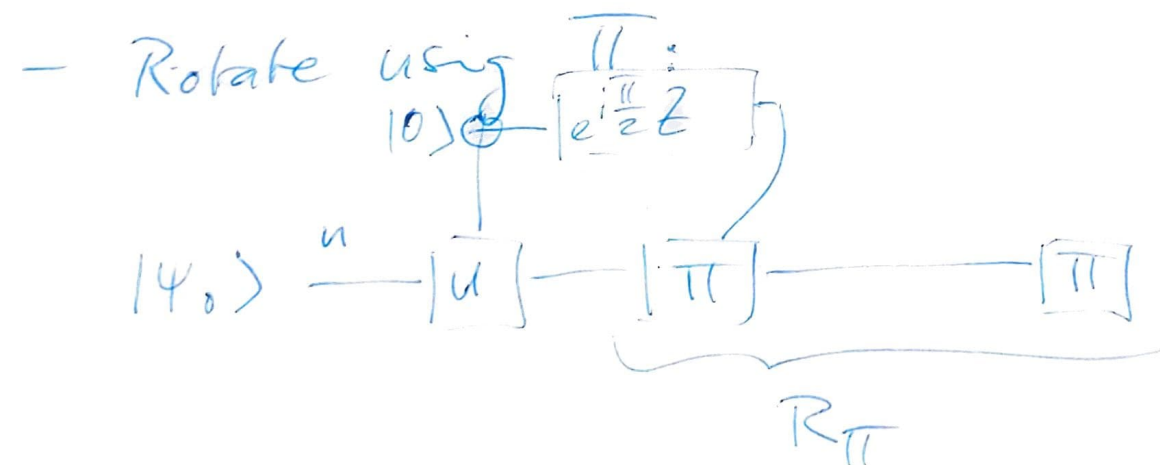 - Rotate using Π :
|0⟩ e^{i π/2 Z}
|Ψ₀⟩ n U Π Π
R_Π